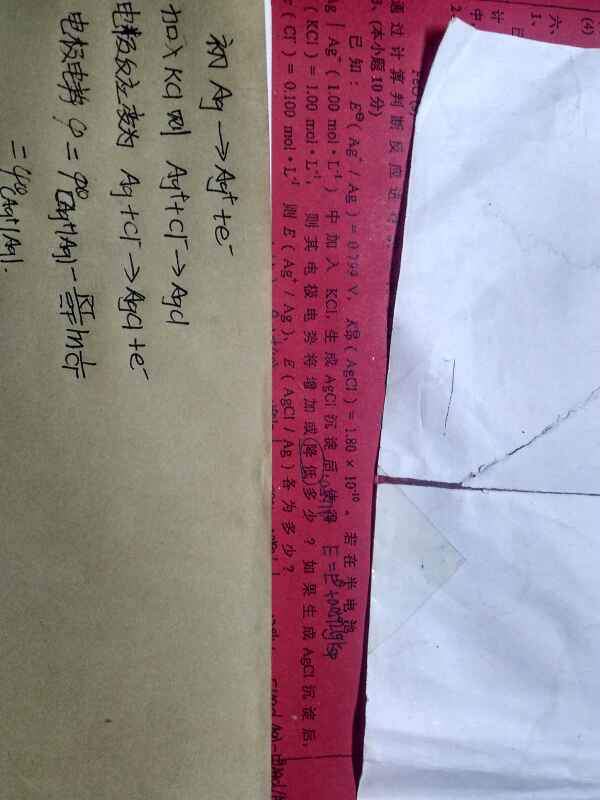 (4)
六、
计
1、
2
通过计算判断反应
3、(本小题10分)
已知:E⊖(Ag⁺/Ag)=0.799 V,K⊖(AgCl)=1.80×10⁻¹⁰。若在半电池
Ag | Ag⁺(1.00 mol·L⁻¹)中加入 KCl,生成 AgCl 沉淀后,使得
(KCl)=1.00 mol·L⁻¹,则其电极电势将增加或降低多少?如果生成AgCl沉淀后,
(Cl⁻)=0.100 mol·L⁻¹ 则 E(Ag⁺/Ag)、E(AgCl/Ag)各为多少?
初 Ag→Ag⁺+e⁻
加入KCl则 Ag⁺+Cl⁻→AgCl
电极反应变为 Ag+Cl⁻→AgCl+e⁻
电极电势 φ=φ⊖(Ag⁺/Ag)-RT/F ln 1/Cl⁻
=φ⊖(Ag⁺/Ag).